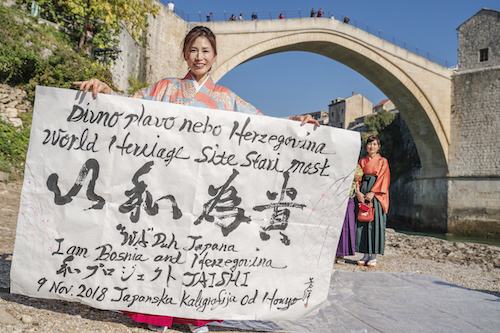 Divno plavo nebo Herzegovine
World Heriage Site Stari most
以和為貴
"WA" Duh Japana
I am Bosnia and Herzegovina
和プロジェクト TAISHI
9 Nov. 2018 Japanska Kaligrafija Od Honyo